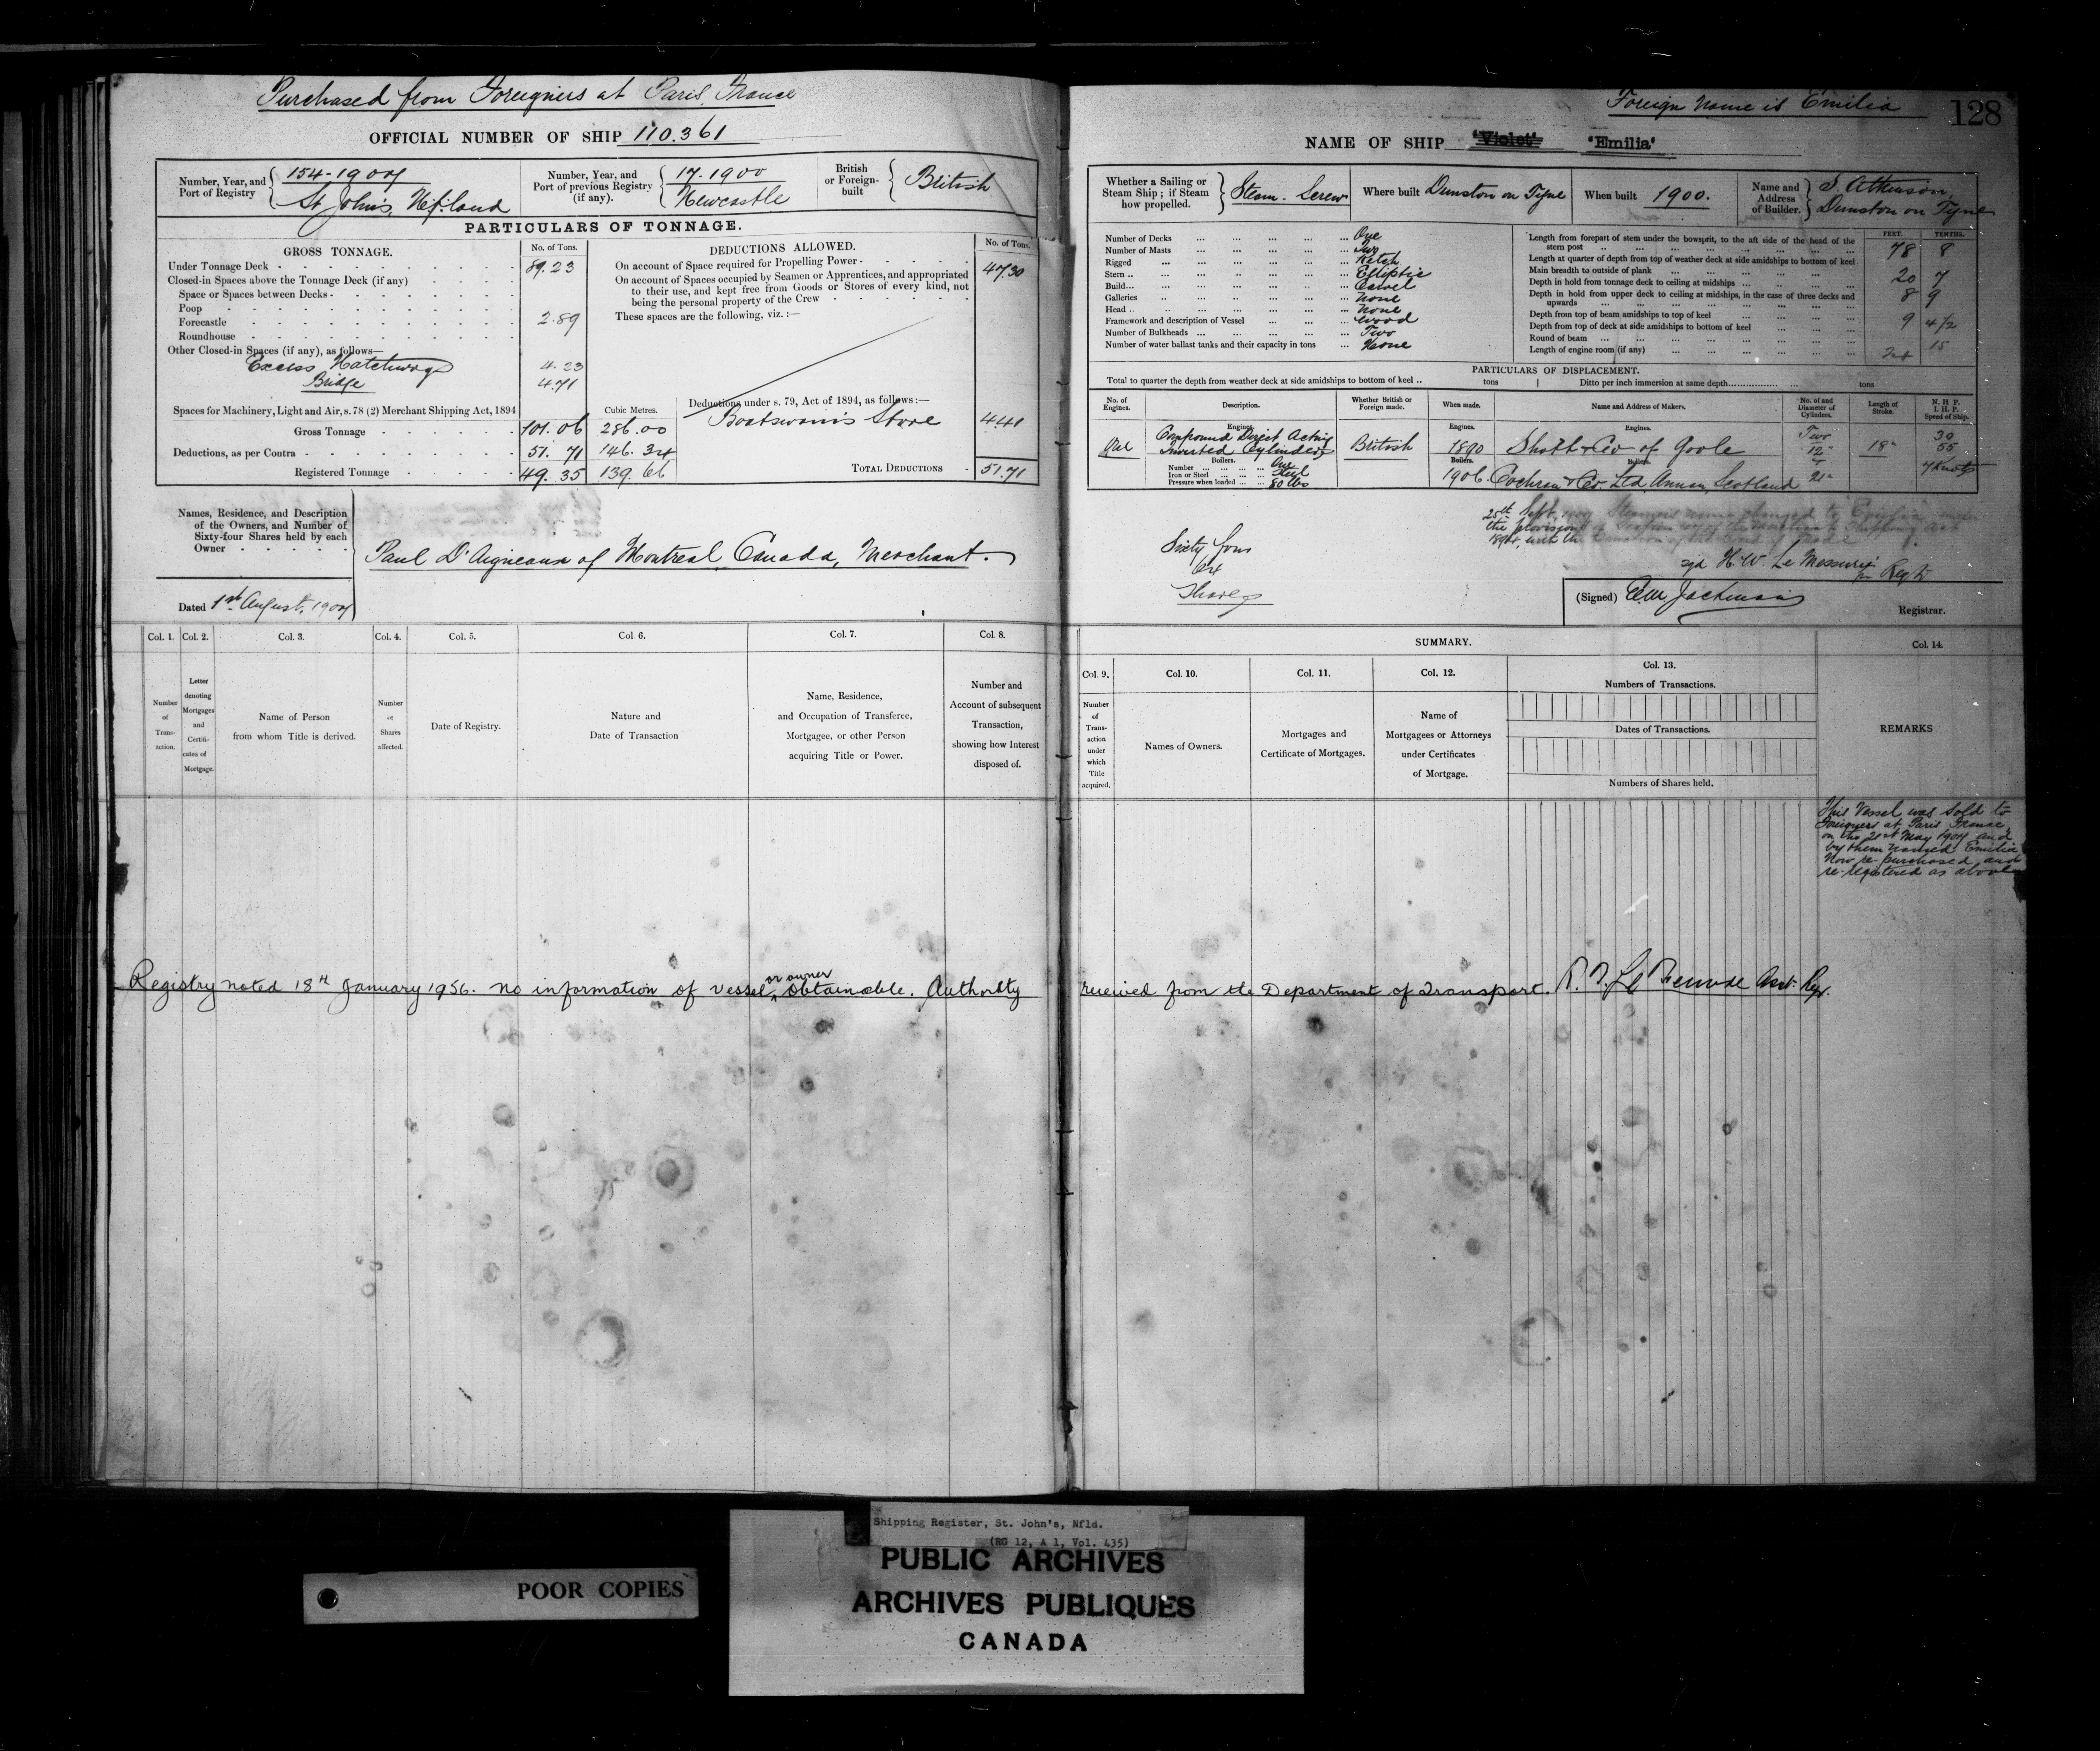 Purchased from Foreigners at Paris, France
OFFICIAL NUMBER OF SHIP 110.361
Number, Year, and Port of Registry 154-1907 St John's, Nf.land
Number, Year, and Port of previous Registry (if any). 17.1900 Newcastle
British or Foreign-built British
PARTICULARS OF TONNAGE.
GROSS TONNAGE. No. of Tons.
Under Tonnage Deck 89.23
Closed-in Spaces above the Tonnage Deck (if any)
Space or Spaces between Decks
Poop
Forecastle 2.89
Roundhouse
Other Closed-in Spaces (if any), as follows—
Excess Hatchways 4.23
Bridge 4.71
Spaces for Machinery, Light and Air, s. 78 (2) Merchant Shipping Act, 1894
Cubic Metres.
Gross Tonnage 101.06 286.00
Deductions, as per Contra 51.71 146.34
Registered Tonnage 49.35 139.66
DEDUCTIONS ALLOWED. No. of Tons.
On account of Space required for Propelling Power 47.30
On account of Spaces occupied by Seamen or Apprentices, and appropriated
to their use, and kept free from Goods or Stores of every kind, not
being the personal property of the Crew
These spaces are the following, viz. :—
Deductions under s. 79, Act of 1894, as follows :—
Boatswain's Store 4.41
TOTAL DEDUCTIONS 51.71
Names, Residence, and Description
of the Owners, and Number of
Sixty-four Shares held by each
Owner
Paul D'Aigneaux of Montreal, Canada, Merchant.
Dated 1st August, 1907
Col. 1. Col. 2. Col. 3. Col. 4. Col. 5. Col. 6. Col. 7. Col. 8.
Number of Trans-action.
Letter denoting Mortgages and Certifi-cates of Mortgage.
Name of Person from whom Title is derived.
Number of Shares affected.
Date of Registry.
Nature and Date of Transaction
Name, Residence, and Occupation of Transferee, Mortgagee, or other Person acquiring Title or Power.
Number and Account of subsequent Transaction, showing how Interest disposed of.
Foreign Name is Emilia
128
NAME OF SHIP 'Violet' 'Emilia'
Whether a Sailing or Steam Ship ; if Steam how propelled. Steam. Screw
Where built Dunston on Tyne
When built 1900.
Name and Address of Builder. S. Atkinson, Dunston on Tyne
Number of Decks One
Number of Masts Two
Rigged Ketch
Stern Elliptic
Build Carvel
Galleries None
Head None
Framework and description of Vessel Wood
Number of Bulkheads Two
Number of water ballast tanks and their capacity in tons None
FEET. TENTHS.
Length from forepart of stem under the bowsprit, to the aft side of the head of the
stern post 78 8
Length at quarter of depth from top of weather deck at side amidships to bottom of keel
Main breadth to outside of plank 20 7
Depth in hold from tonnage deck to ceiling at midships 8 9
Depth in hold from upper deck to ceiling at midships, in the case of three decks and
upwards
Depth from top of beam amidships to top of keel 9 4/2
Depth from top of deck at side amidships to bottom of keel
Round of beam
Length of engine room (if any)
PARTICULARS OF DISPLACEMENT.
Total to quarter the depth from weather deck at side amidships to bottom of keel .. tons Ditto per inch immersion at same depth tons
No. of Engines. Description. Whether British or Foreign made. When made. Name and Address of Makers. No. of and Diameter of Cylinders. Length of Stroke. N. H. P. I. H. P. Speed of Ship.
Engines. Engines. Engines.
One Compound Direct Acting Inverted Cylinders British 1890 Shott & Co of Goole Two 12" 18" 30 55
Boilers. Boilers. Boilers.
Number One
Iron or Steel Steel
Pressure when loaded 80 lbs
1906. Cochran & Co. Ltd, Annan, Scotland 21" 7 Knots
Sixty four
64
Shares
25th Sept. 1907 Steamer's name changed to Emilia under
the provisions of Section 47 of the Merchant Shipping Act
1894, with the sanction of the Board of Trade
sgd H. W. Le Messurier
Regtr
(Signed) Registrar.
SUMMARY.
Col. 9. Col. 10. Col. 11. Col. 12. Col. 13. Col. 14.
Number of Trans-action under which Title acquired.
Names of Owners.
Mortgages and Certificate of Mortgages.
Name of Mortgagees or Attorneys under Certificates of Mortgage.
Numbers of Transactions.
Dates of Transactions.
Numbers of Shares held.
REMARKS
This Vessel was sold to
Foreigners at Paris France
on the 21st May 1907 and
by them named Emilia
Now re-purchased and
re-registered as above
Registry noted 18th January 1956. no information of vessel or owner obtainable. Authority received from the Department of Transport. Asst. Regr.
Shipping Register, St. John's, Nfld.
(RG 12, A 1, Vol. 435)
POOR COPIES
PUBLIC ARCHIVES
ARCHIVES PUBLIQUES
CANADA